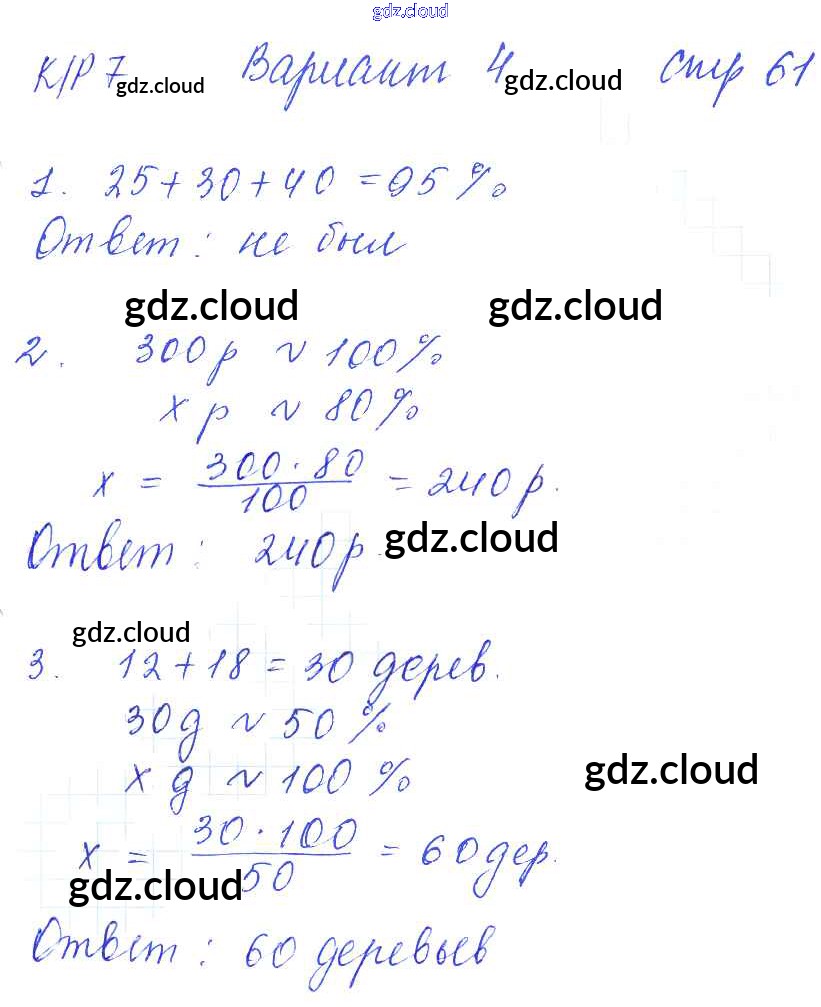 gdz.cloud
К/Р 7 gdz.cloud Вариант 4 gdz.cloud стр 61
1. 25 + 30 + 40 = 95 %
Ответ: не был
gdz.cloud gdz.cloud
2. 300 р ~ 100 %
х р ~ 80 %
х = 300 · 80 / 100 = 240 р.
Ответ: 240 р. gdz.cloud
gdz.cloud
3. 12 + 18 = 30 дерев.
30 д ~ 50 %
х д ~ 100 %
gdz.cloud
х = 30 · 100 / 50 = 60 дер.
gdz.cloud
Ответ: 60 деревьев